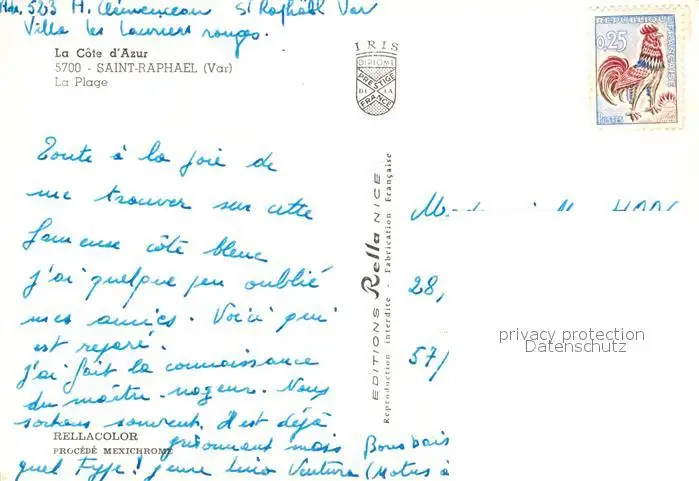 523 H. Clémenceau St Raphaël Var
Villa les Lauriers rouges.
La Côte d'Azur
5700 - SAINT-RAPHAEL (Var)
La Plage
IRIS
DIPLOME
PRESTIGE
DE LA
FRANCE
REPUBLIQUE FRANÇAISE
0,25
POSTES
Toute à la joie de
me trouver sur cette
fameuse côte bleue
j'ai quelque peu oublié
mes amies. Voici qui
est réparé.
j'ai fait la connaissance
du maître-nageur. Nous
sortons souvent. Il est déjà
grisonnant mais
quel Type! genre Lino Ventura (Motus
EDITIONS Rella NICE
Reproduction interdite - Fabrication Française
28,
57/
privacy protection
Datenschutz
RELLACOLOR
PROCÉDÉ MEXICHROME